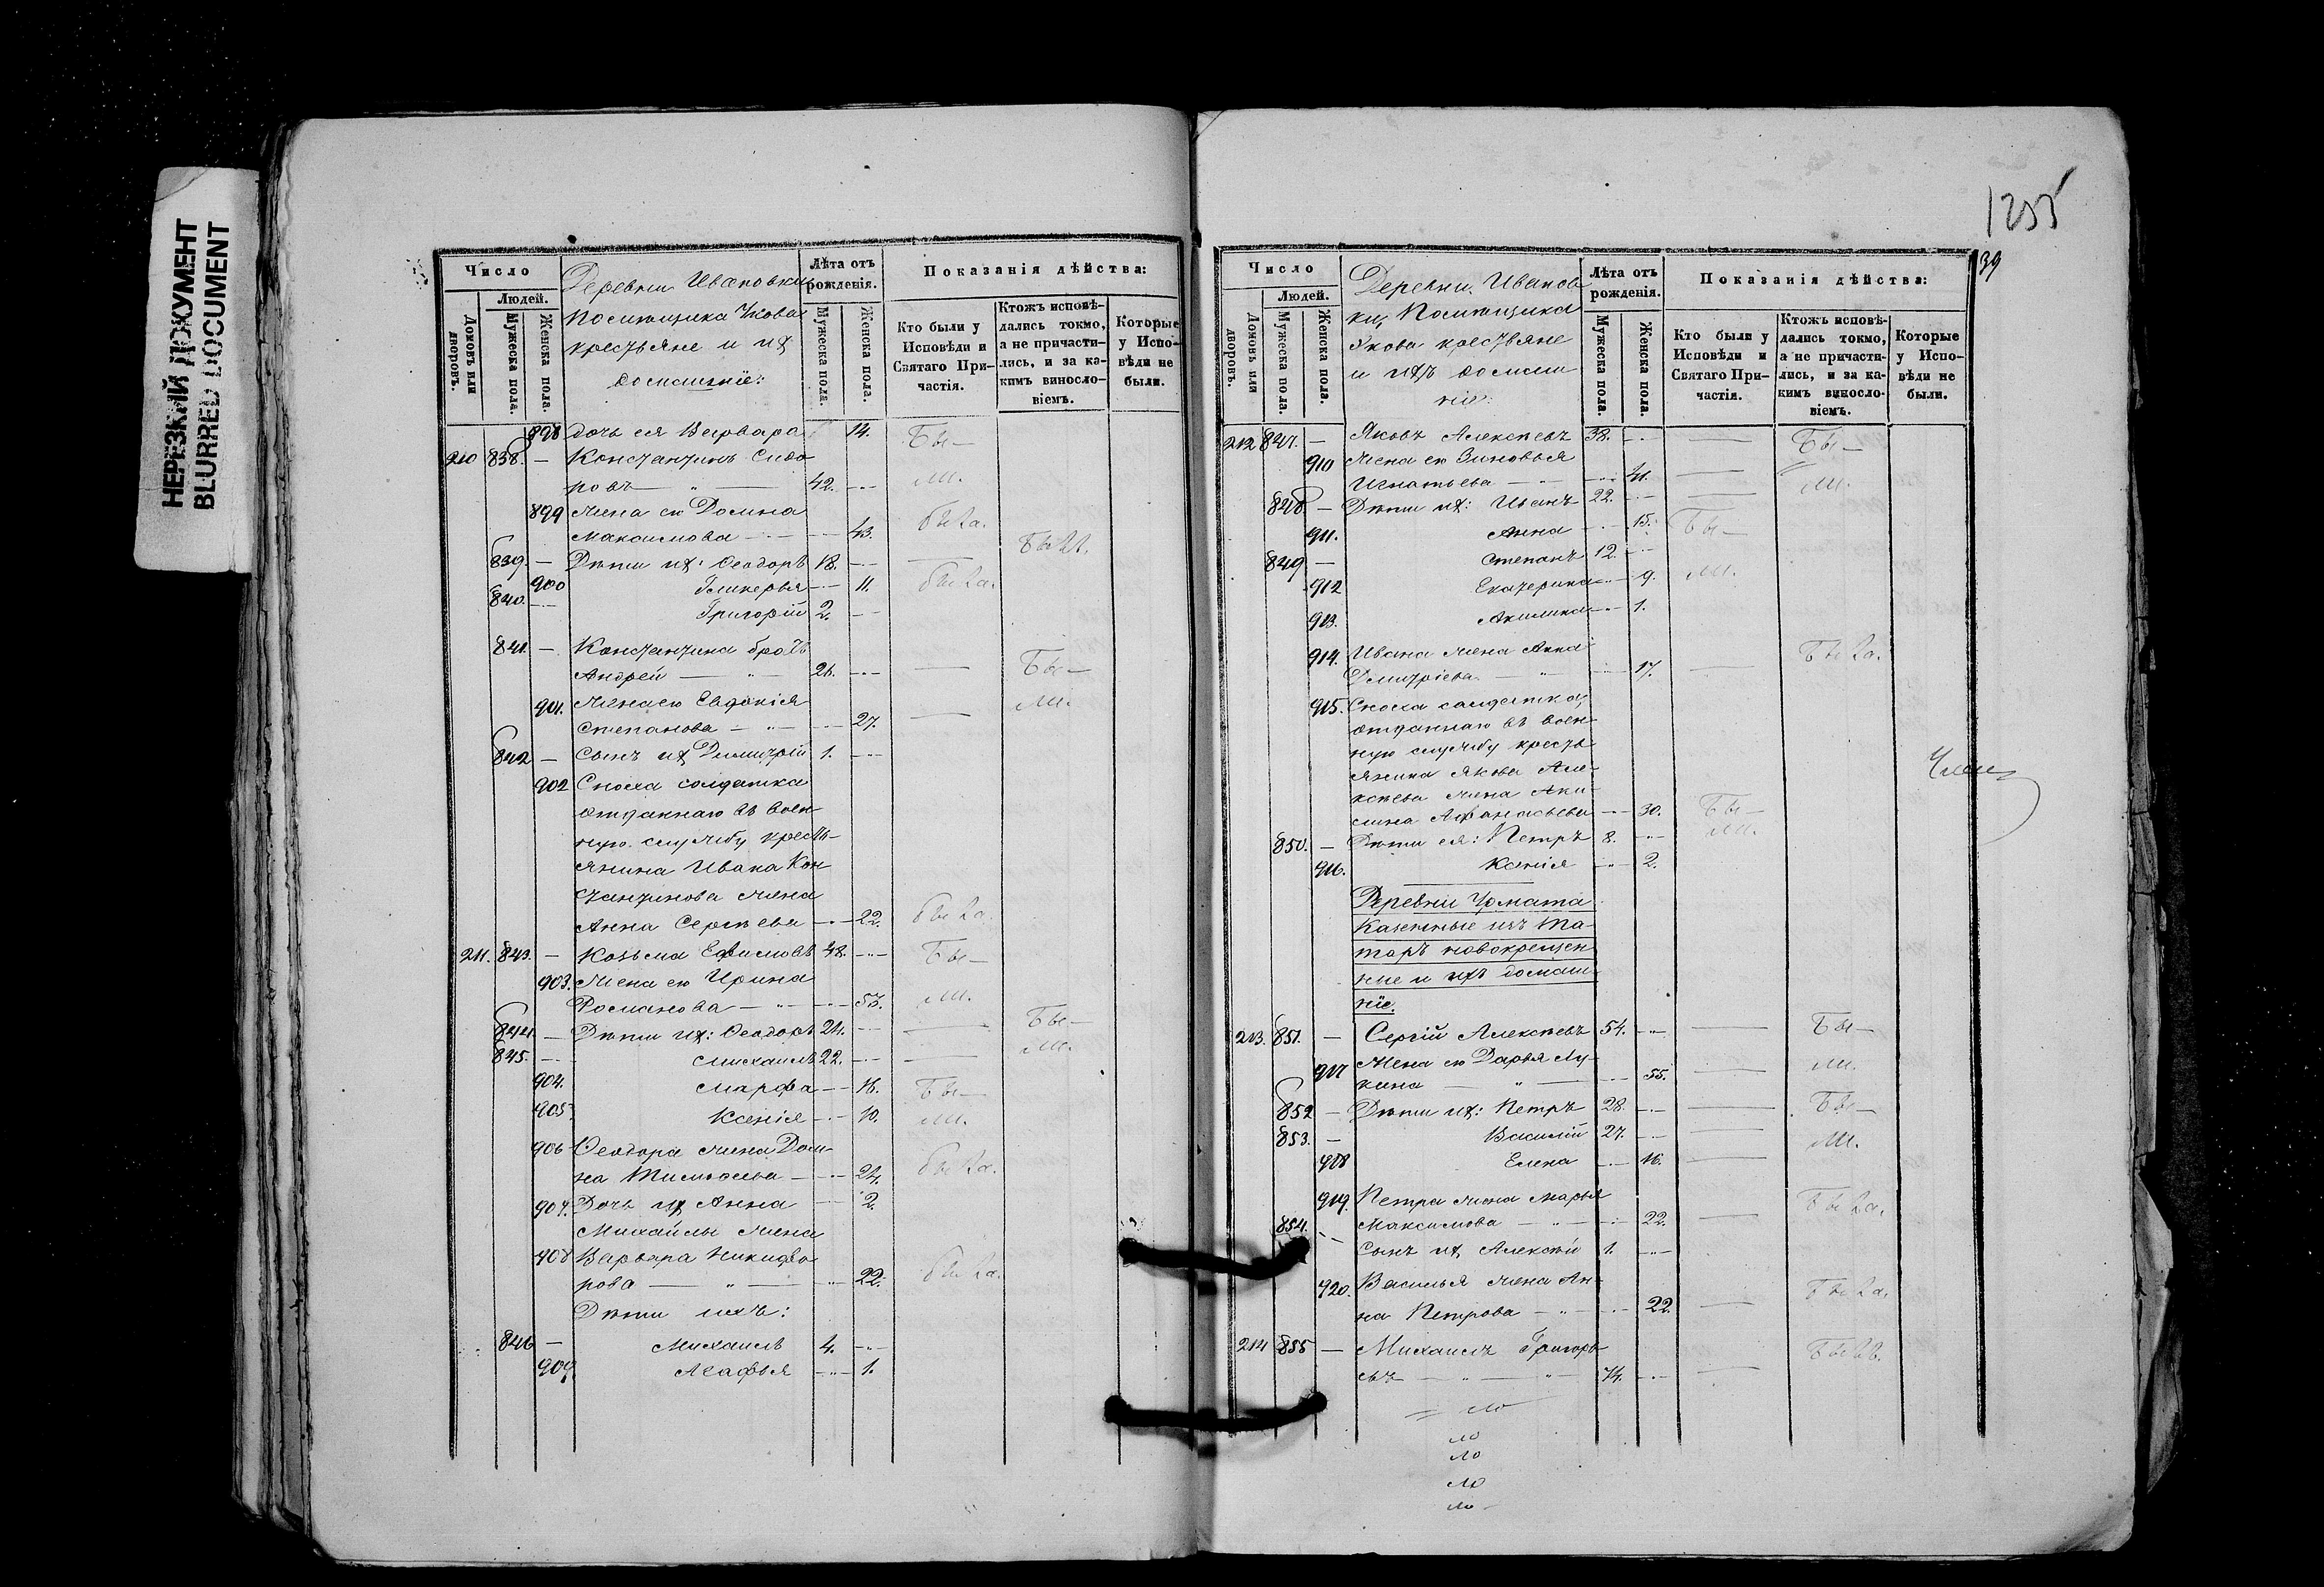 НЕРЕЗКИЙ ДОКУМЕНТ
BLURRED DOCUMENT
Число
Людей.
Домовъ или дворовъ.
Мужеска пола.
Женска пола.
Деревни Ивановки
помѣщика
крестьяне и их
домашніе:
Лѣта отъ рожденія.
Мужеска пола.
Женска пола.
Показанія дѣйства:
Кто были у Исповѣди и Святаго Причастія.
Ктожъ исповѣдались токмо, а не причастились, и за какимъ винословіемъ.
Которые у Исповѣди не были.
898 дочь ея Варвара 14. Бы-
210 838. — Константинъ Сидо
ровъ — " — 42. ли.
899 Жена ею Домна
Максимова — 43. была.
839. — Дѣти их: Ѳеодоръ 18. — былъ.
900 Гликерья — 11. была.
840. — Григорій 2.
841. — Константина братъ
Андрей — " — 26. — Бы-
901. Жена ею Евдокія ли.
Степанова — " — 27.
842 — Сынъ их Димитрій 1.
902 Сноха солдатка
отданнаго въ воен
ную службу кресть-
янина Ивана Кон
стантинова жена
Анна Сергѣева — 22. была.
211. 843. — Козьма Ефимовъ 48. — Бы-
903. Жена ею Ирина
Романова — " — 53. ли.
844. — Дѣти их: Ѳеодоръ 24. — Бы-
845. — Михаилъ 22. — ли.
904. Марфа — 16. Бы-
905 Ксенія — 10. ли.
906 Ѳеодора жена Дом-
на Тимофеева — 24. была.
907. Дочь их Анна — 2.
Михайлы жена
908 Варвара Никифо
рова — " — 22. была.
Дѣти ихъ:
846 — Михаилъ 4.
909 Агафья — 1.
1255
39
Число
Людей.
Домовъ или дворовъ.
Мужеска пола.
Женска пола.
Деревни Иванов
ки, Помѣщика
Якова крестьяне
и ихъ домаш
ніе:
Лѣта отъ рожденія.
Мужеска пола.
Женска пола.
Показанія дѣйства:
Кто были у Исповѣди и Святаго Причастія.
Ктожъ исповѣдались токмо, а не причастились, и за какимъ винословіемъ.
Которые у Исповѣди не были.
212 847. — Яковъ Алексѣевъ 38. — Бы-
910 Жена ею Зиновья
Игнатьева — 41. — ли.
848. — Дѣти их: Иванъ 22.
911. Анна — 15. Бы-
849 — Степанъ 12.
912 Екатерина — 9. ли.
913. Акилина — 1.
914. Ивана жена Анна
Дмитріева — " — 17. — была.
915. Сноха солдатка,
отданнаго въ воен
ную службу кресть
янина Якова Але-
ксѣева жена Аки-
лина Афанасьева — 30. Бы-
850. — Дѣти ея: Петръ 8. ли.
916. Ксенія — 2.
Казенные изъ та-
таръ новокрещен
ные и ихъ домаш
ніе.
213. 851. — Сергій Алексѣевъ 54. — Бы-
917 Жена ею Дарья Лу-
кина — " — 55. — ли.
852 — Дѣти их: Петръ 28. — Бы-
853. — Василій 27. — ли.
918 Елена — 16.
919. Петра жена Марья
Максимова — " — 22. — была.
854. — Сынъ их Алексѣй 1.
920. Василья жена Ан-
на Петрова — " — 22. — была.
214 855 — Михаилъ Григорь
евъ — " — 74. — былъ.